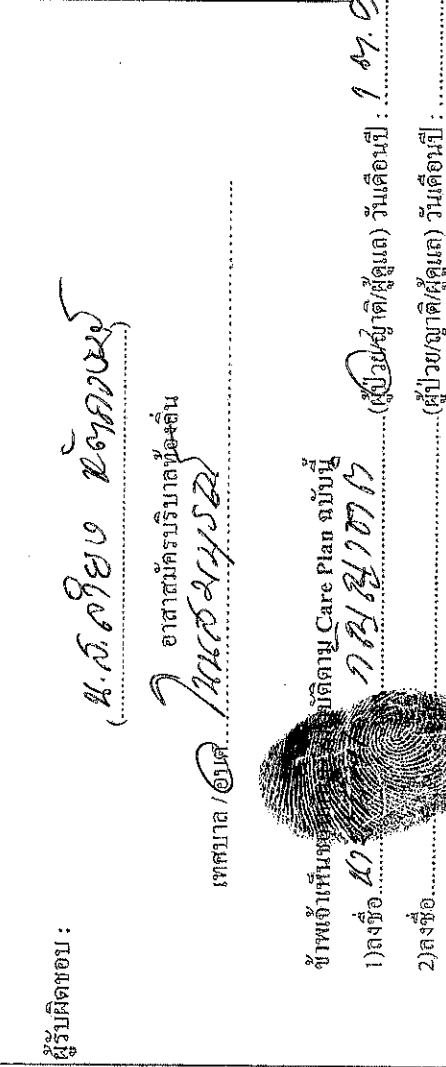 ผู้รับผิดชอบ :
(น.ส.ลำยง)
อาสาสมัครบริบาลท้องถิ่น
เทศบาล / อบต. โนนสมบูรณ์
ข้าพเจ้าเห็นชอบ บัติตาม Care Plan ฉบับนี้
1)ลงชื่อ (ผู้ป่วย/ญาติ/ผู้ดูแล) วันเดือนปี : 1 ต.ค
2)ลงชื่อ (ผู้ป่วย/ญาติ/ผู้ดูแล) วันเดือนปี :